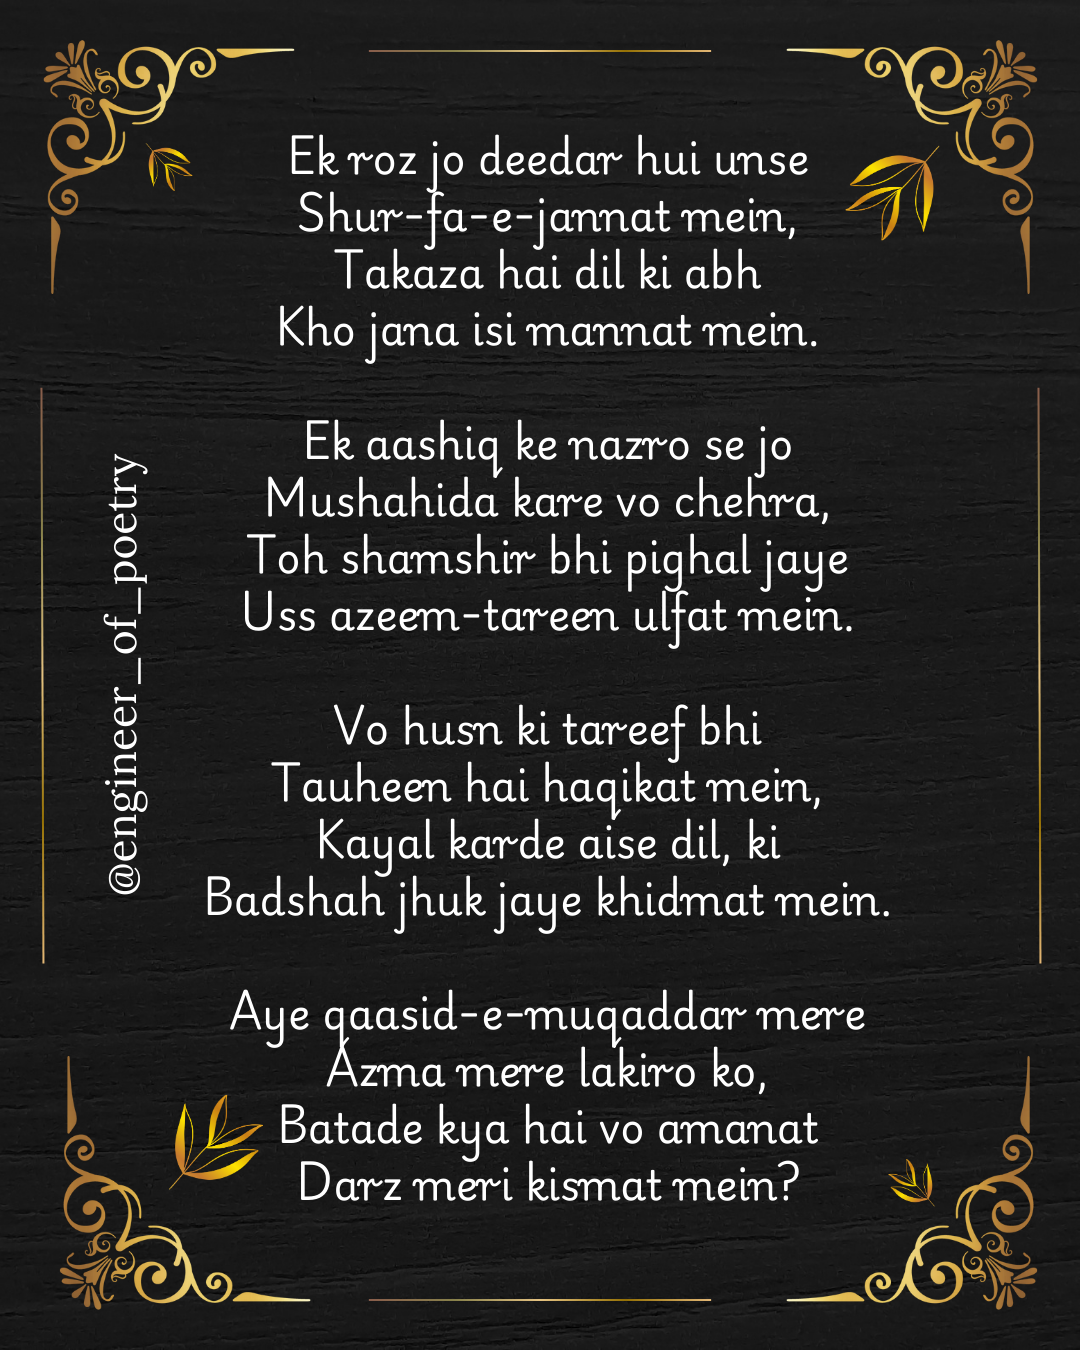 Ek roz jo deedar hui unse
Shur-fa-e-jannat mein,
Takaza hai dil ki abh
Kho jana isi mannat mein.
Ek aashiq ke nazro se jo
Mushahida kare vo chehra,
Toh shamshir bhi pighal jaye
Uss azeem-tareen ulfat mein.
Vo husn ki tareef bhi
Tauheen hai haqikat mein,
Kayal karde aise dil, ki
Badshah jhuk jaye khidmat mein.
Aye qaasid-e-muqaddar mere
Azma mere lakiro ko,
Batade kya hai vo amanat
Darz meri kismat mein?
@engineer_of_poetry